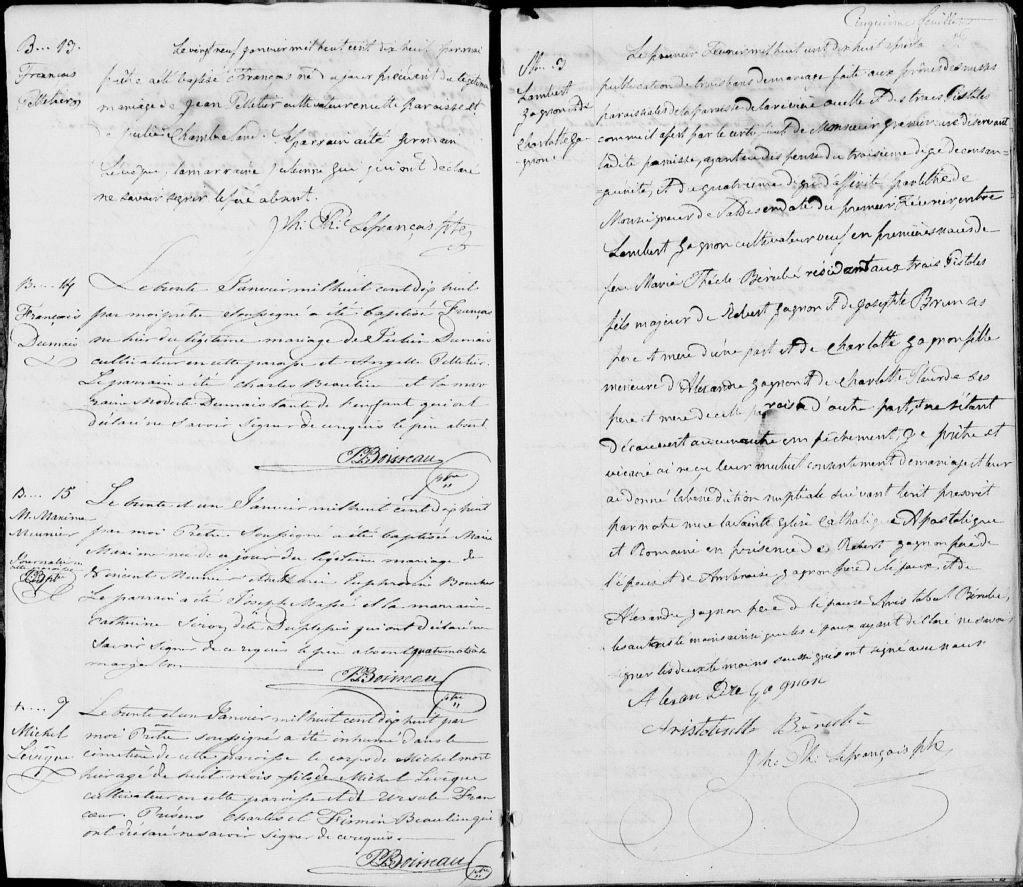 B... 13.
François
Pelletier
Le vingt neuf janvier mil huit cent dix huit par moi
prêtre a été baptisé François né du jour précédent du légitime
mariage de Jean Pelletier cultivateur en cette Paroisse et
de Julienne Chamberland. Le parrain a été Germain
Levêque, la marraine Julienne qui ont déclaré
ne savoir signer le père absent.
Ph. Lefrançois ptre
B... 14
François
Dumais
Le trente Janvier mil huit cent dix huit
par moi prêtre Soussigné a été baptisé François
né hier du légitime mariage de Dumais
cultivateur en cette paroisse et Pelletier.
Le parrain a été Charles Beaulieu et la mar
raine Modeste Dumais tante de l'enfant qui ont
déclaré ne savoir Signer de ce requis le père absent
Boisseau ptre
B... 15
M. Maxime
Meunier
Journalier en
cette paroisse
ptre
Le trente et un Janvier mil huit cent dix huit
par moi Prêtre Soussigné a été baptisée Marie
Maxime née de ce jour du légitime mariage de
Meunier et de Boucher
Le parrain a été Joseph Massé et la marraine
Catherine dite Duplessis qui ont déclaré ne
Savoir Signer de ce requis le père absent quatre mots à la
marge bon
Boisseau ptre
7
Michel
Levêque
Le trente et un Janvier mil huit cent dix huit par
moi Prêtre soussigné a été inhumé dans le
cimetière de cette paroisse le corps de Michel mort
hier agé de huit mois fils de Michel Levêque
cultivateur en cette paroisse et de Ursule Fran
coeur. Présens Charles et Firmin Beaulieu qui
ont déclaré ne savoir Signer de ce requis.
Boisseau ptre
Cinquième feuillet
M... 3
Lambert
Gagnon &
Charlotte Ga
gnon
Le premier Fevrier mil huit cent dix huit après la
publication de trois bans de mariage faite aux prônes des messes
paroissiales de la paroisse de la rivière ouelle et des trois Pistoles
comme il apert par le certificat de Monsieur curé desservant
ladite paroisse, ayant eu dispense du troisieme degré de consan-
guinité, et du quatrieme degré d'affinité par lettre de
Monseigneur de en date du premier Fevrier entre
Lambert Gagnon cultivateur veuf en premières noces de
feu Marie Thècle Berubé résidant aux trois Pistoles
fils majeur de Robert Gagnon et de Josephte Brun ses
père et mère d'une part et de Charlotte Gagnon fille
mineure d'Alexandre Gagnon et de Charlotte Pleurde ses
père et mère de cette paroisse d'autre part, et ne s'étant
découvert aucun autre empêchement, Je prêtre et
vicaire ai reçu leur mutuel consentement de mariage et leur
ai donné la bénédiction nuptiale suivant le rit prescrit
par notre mère la Sainte Eglise Catholique Apostolique
et Romaine en présence de Robert Gagnon père de
l'époux et de Ambroise Gagnon frère de l'époux, et de
Alexandre Gagnon père de l'épouse Aristobule Berubé,
les autres témoins ainsi que les époux ayant déclaré ne savoir
signer les deux témoins soussignés ont signé avec nous
Alexandre Gagnon
Aristobulle Berubé
Ph. Lefrançois ptre